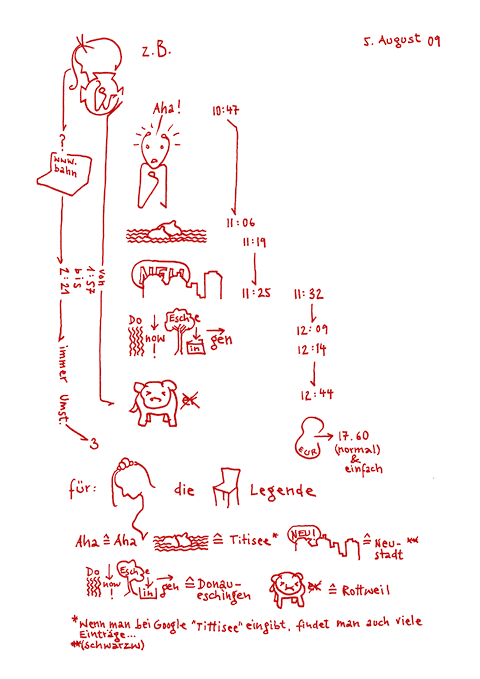 5. August 09
z.B.
Aha!
10:47
?
www.
bahn
11:06
11:19
NEU!
von
1:57
bis
2:21
11:25
11:32
Do
now
!
Esche
in
gen
12:09
12:14
immer Umst.
3
12:44
EUR
17.60
(normal)
&
einfach
für: die Legende
Aha ≙ Aha
≙ Titisee*
NEU!
≙ Neu-**
stadt
Do
now
!
Esche
in
gen
≙ Donau-
eschingen
≙ Rottweil
*Wenn man bei Google "Tittisee" eingibt, findet man auch viele
Einträge...
**(Schwarzw)